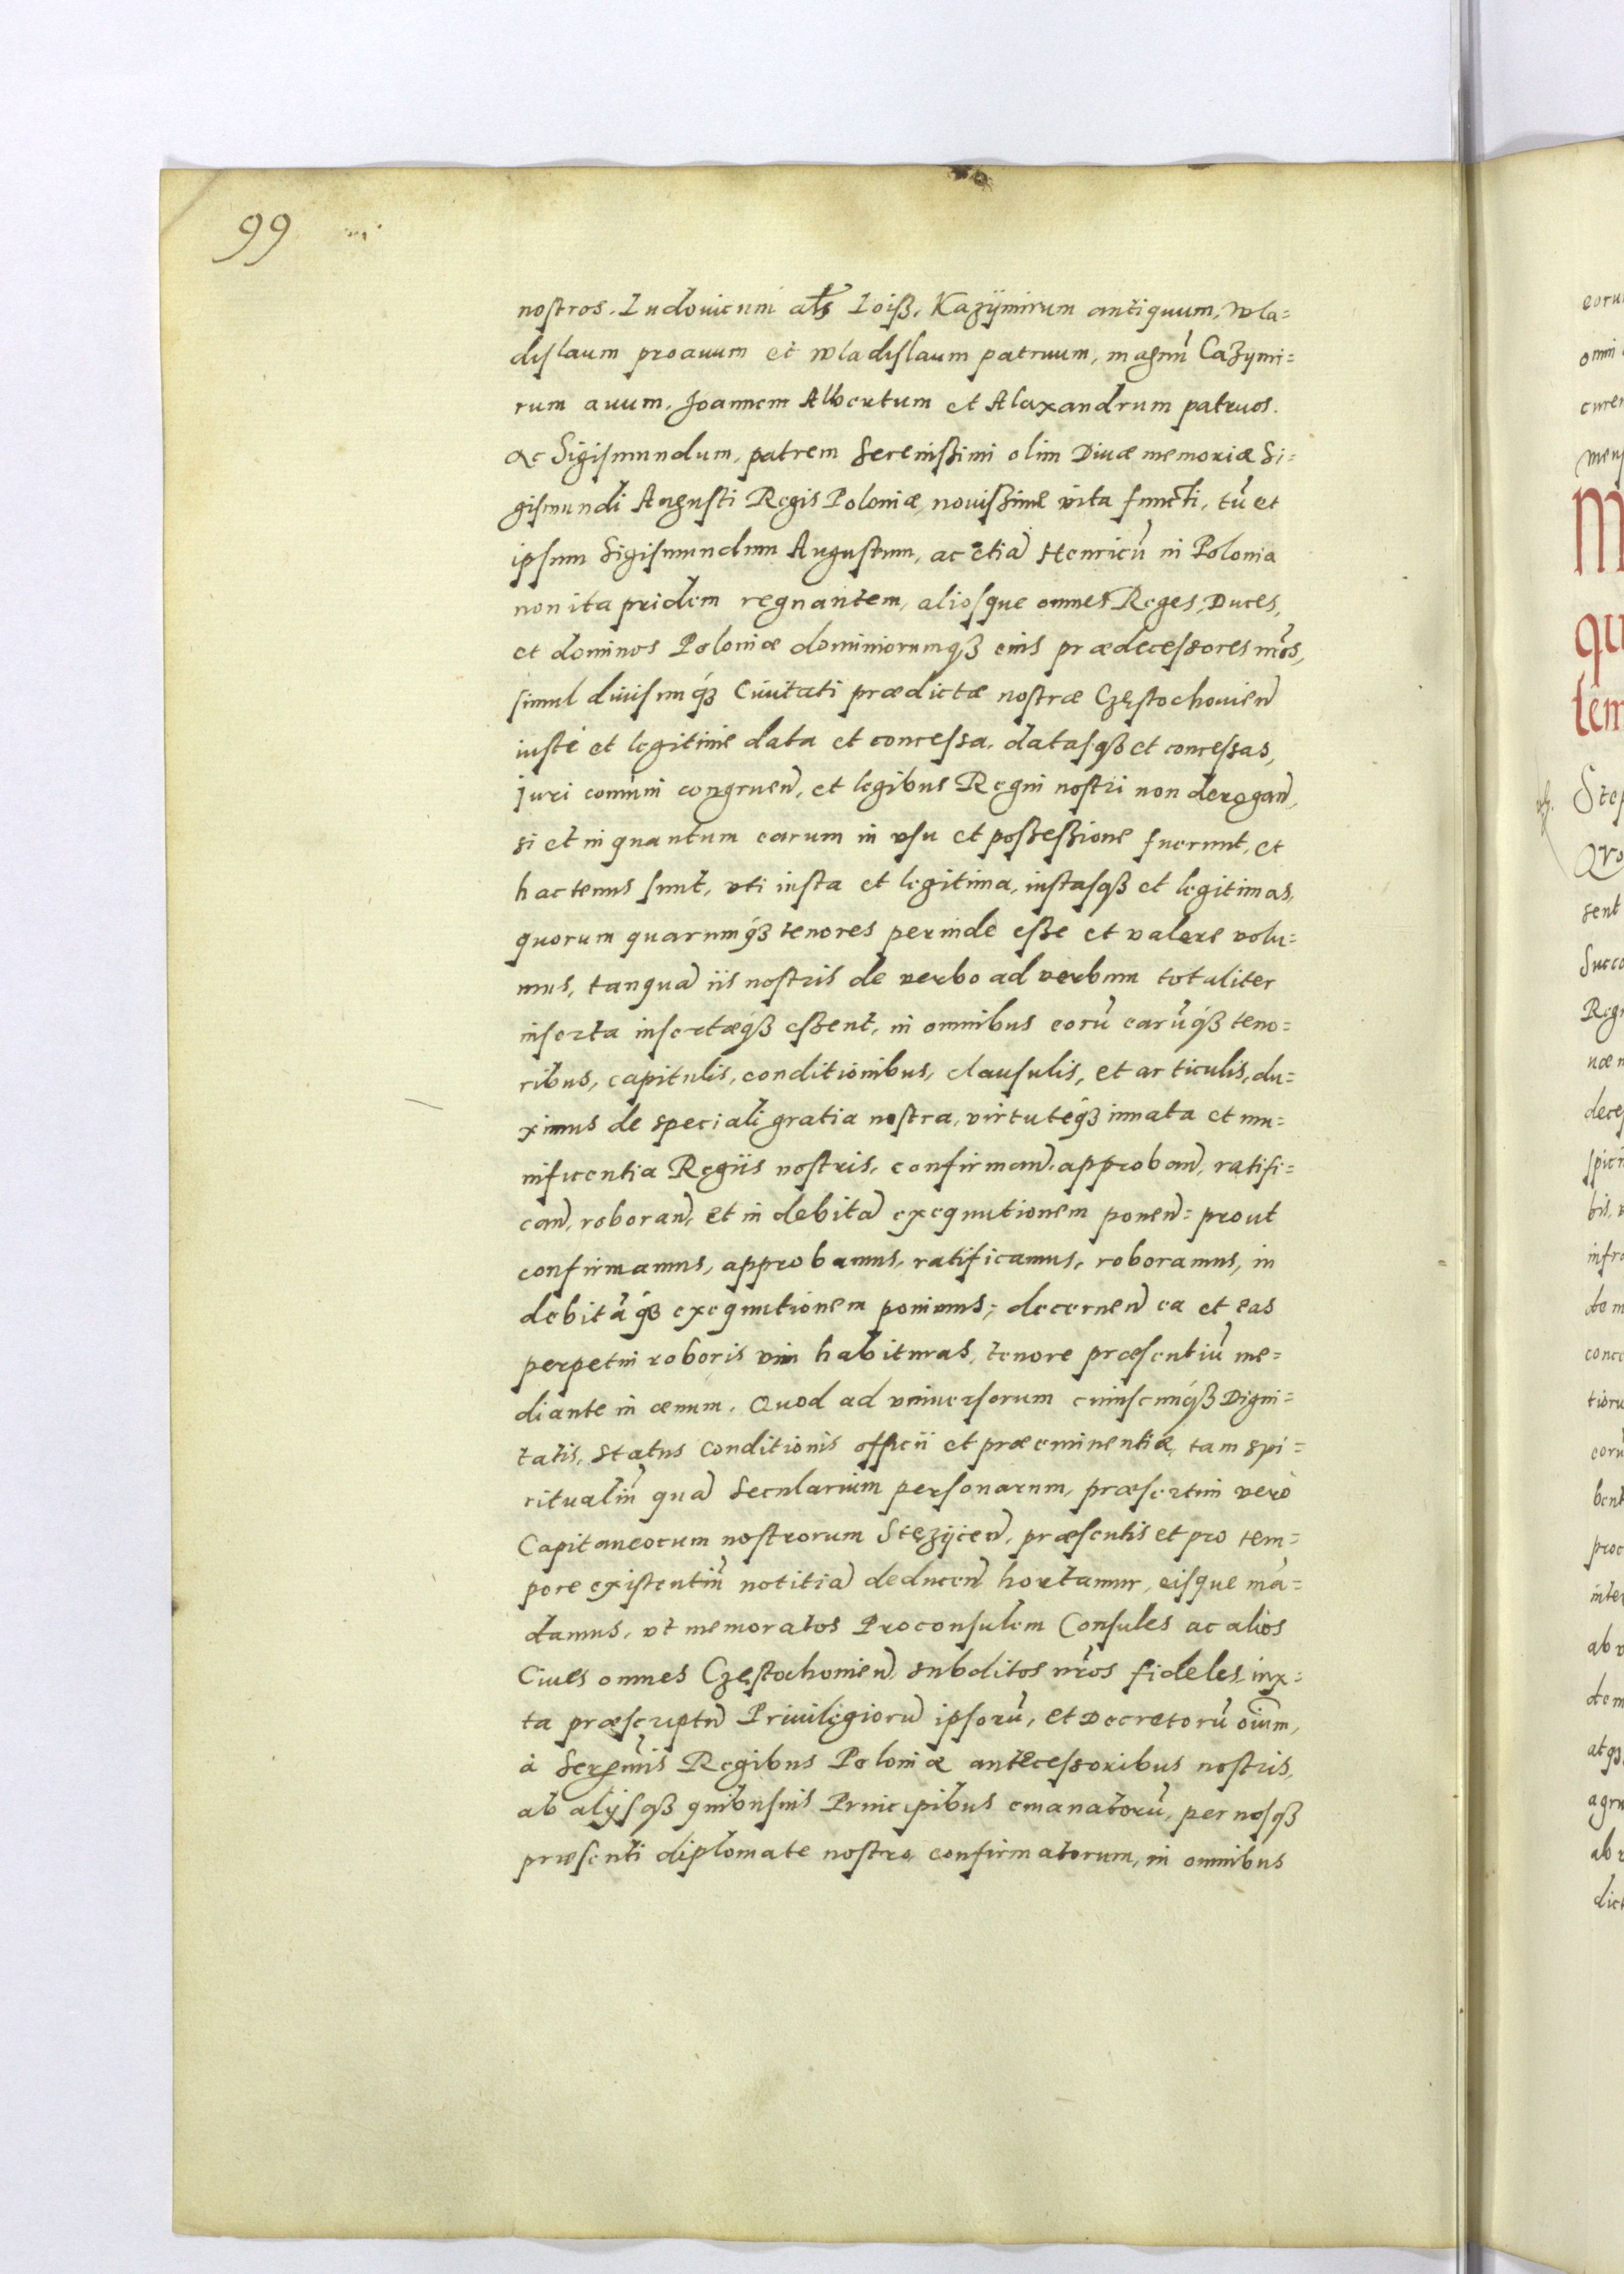 99
nostros. Ludouicum al's Loiß, Kazÿmirum antiquum, Wla=
dislaum proauum et Wladislaum patruum, magnū Cazymi=
rum auum, Joannem Albertum et Alaxandrum patruos.
ac Sigismundum, patrem Serenißimi olim Diuæ memoriæ Si=
gismundi Augusti Regis Poloniæ, nouißime vita functi, tū et
ipsum Sigismundum Augustum, ac etiā Henricū in Polonia
non ita pridem regnantem, aliosque omnes Reges, Duces,
et dominos Poloniæ dominiorumqȝ eius prædecessores nr̄os,
simul diuisimqȝ Ciuitati prædictæ nostræ Częstochouien̄
iustè et legitime data et concessa, datasqȝ et concessas,
Juri com̄uni congruen̄, et legibus Regni nostri non derogan̄,
si et in quantum earum in vsu et poßeßione fuerunt, et
hactenus sunt, vti iusta et legitima, iustasqȝ et legitimas,
quorum quarumqȝ tenores perinde eße et valere volu=
mus, tanquā iis nostris de verbo ad verbum totaliter
inserta insertæqȝ eßent, in omnibus eorū earūqȝ teno=
ribus, capitulis, conditionibus, clausulis, et articulis, du=
ximus de speciali gratia nostra, virtuteqȝ innata et mu=
nificentia Regiis nostris, confirman̄, approban̄, ratifi=
can̄, roboran̄, et in debitā exequutionem ponen̄= prout
confirmamus, approbamus, ratificamus, roboramus, in
debitāqȝ exequutionem ponimus; decernen̄ ea et eas
perpetui roboris vim habituras, tenore præsentiū me=
diante in æuum. Quod ad vniuersorum cuiuscunqȝ Digni=
tatis, status conditionis officii et præeminentiæ, tam spi=
ritualiū quā Secularium personarum, præsertim verò
Capitaneorum nostrorum Stęzÿcen̄, præsentis et pro tem=
pore existentiū notitiā deducen̄ hortamur, eisque mā=
damus, vt memoratos Proconsulem Consules ac alios
Ciues omnes Częstochouien̄, subditos nr̄os fideles, iux=
ta præscriptū Priuilegiorū ipsorū, et Decretorū oīum,
à Serenīs Regibus Poloniæ antecessoribus nostris,
ab alijsqȝ quibusuis Principibus emanatorū, per nosqȝ
præsenti diplomate nostro confirmatorum, in omnibus